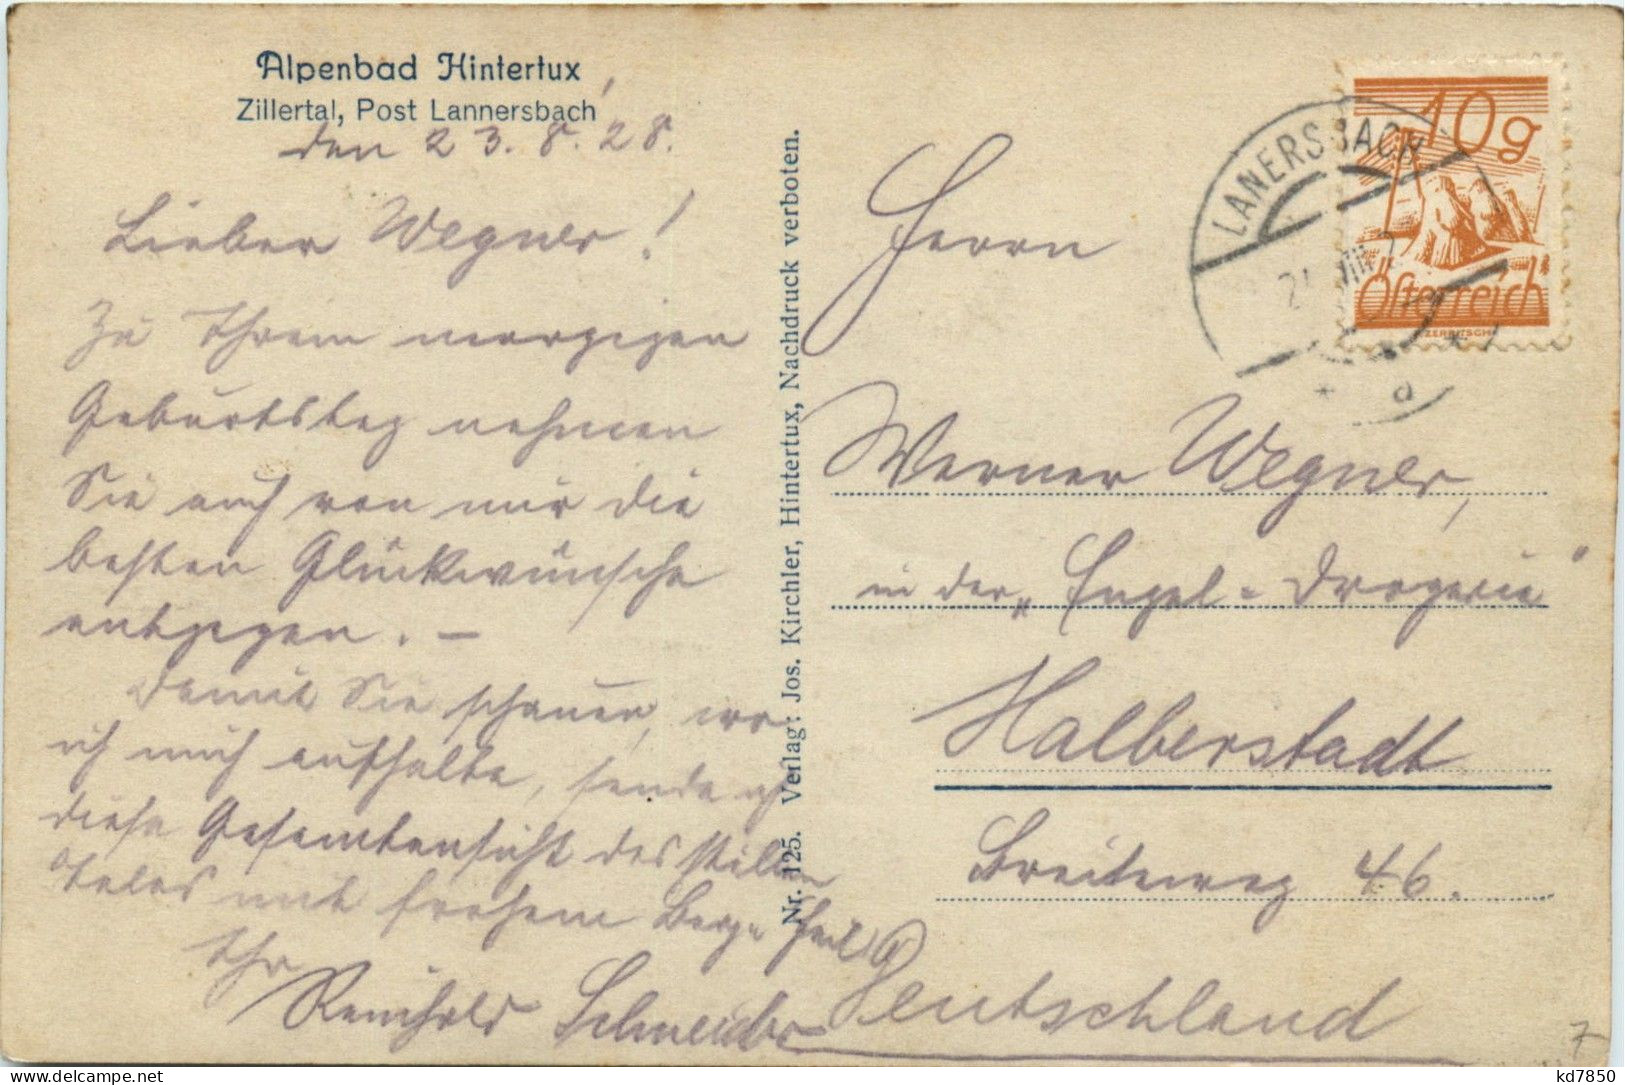 Alpenbad Hintertux
Zillertal, Post Lannersbach,
den 23.8.'28.
Lieber Wegner!
Zu Ihrem morgigen
Geburtstag nehmen
Sie auch von mir die
besten Glückwünsche
entgegen. —
Damit Sie schauen, wo
ich mich aufhalte, sende ich
diese Gesamtansicht des stillen
Tales mit frohem Berg-Heil
Ihr
Reinhold Schneider
Nr. 125. Verlag: Jos. Kirchler, Hintertux, Nachdruck verboten.
LANERSBACH
VIII
* a
10g
Österreich
ZERRITSCH
Herrn
Werner Wegner,
in der „Engel-Drogerie"
Halberstadt
Breiteweg 46.
Deutschland
7
kd7850